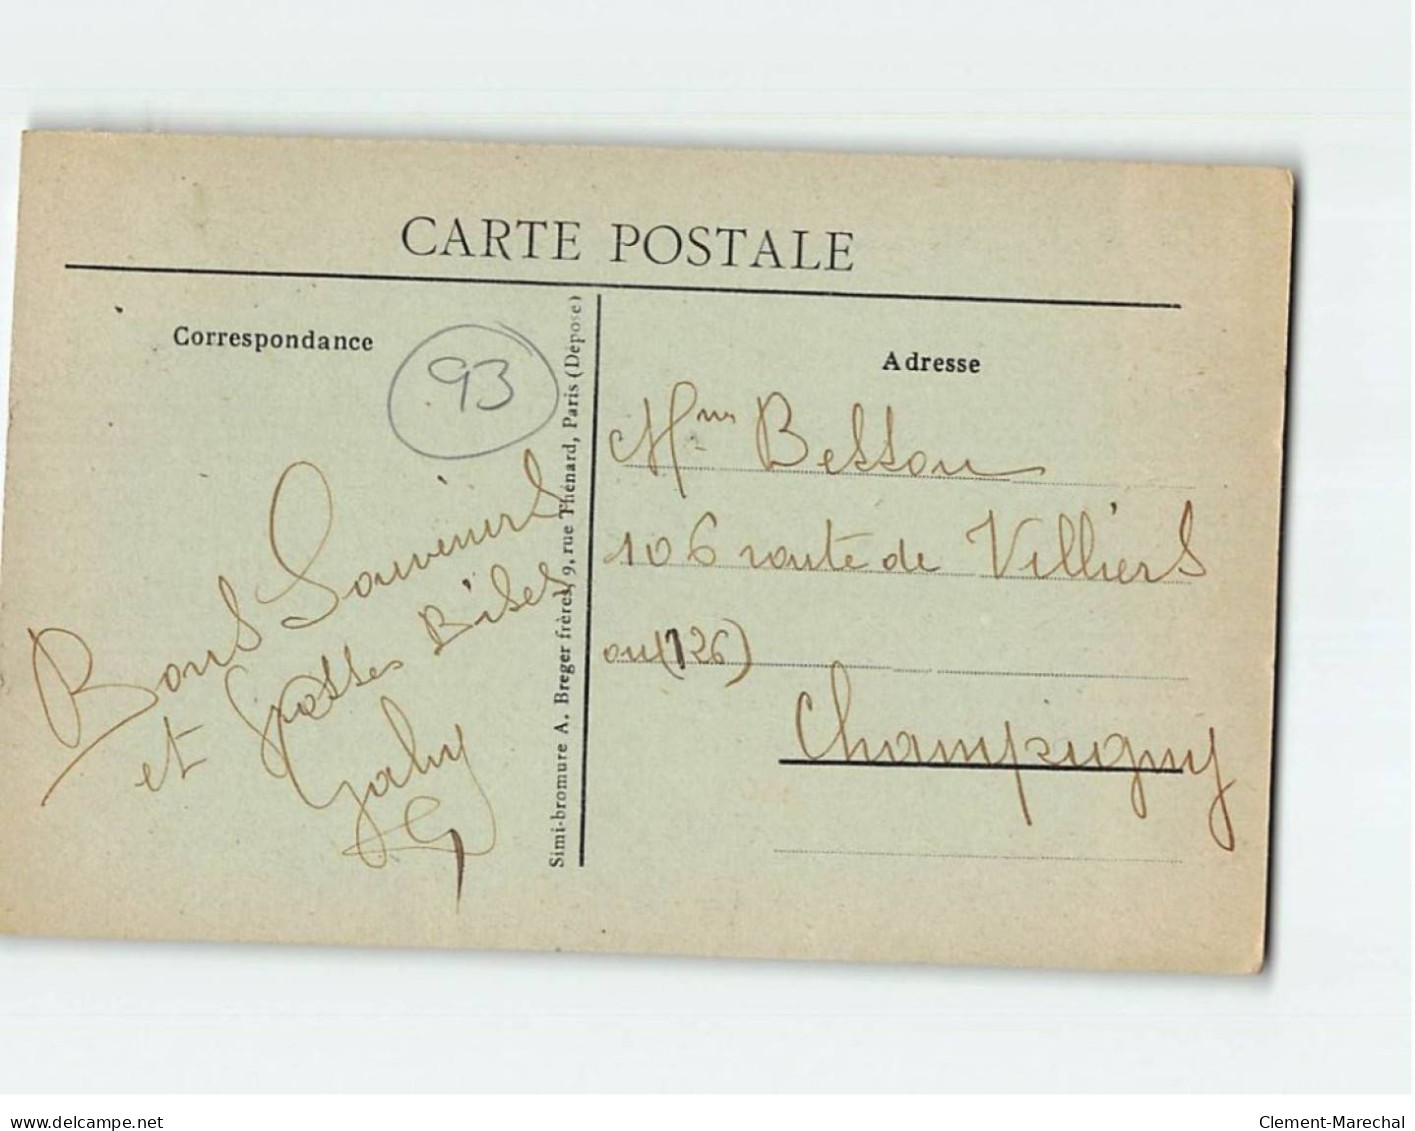 CARTE POSTALE
Correspondance
93
Bons Souvenirs
et Grosses Bises
Gaby
Simi-bromure A. Breger frères, 9, rue Thénard, Paris (Déposé)
Adresse
Mme Besson
106 route de Villiers
ou (126)
Champigny
www.delcampe.net
Clement-Marechal